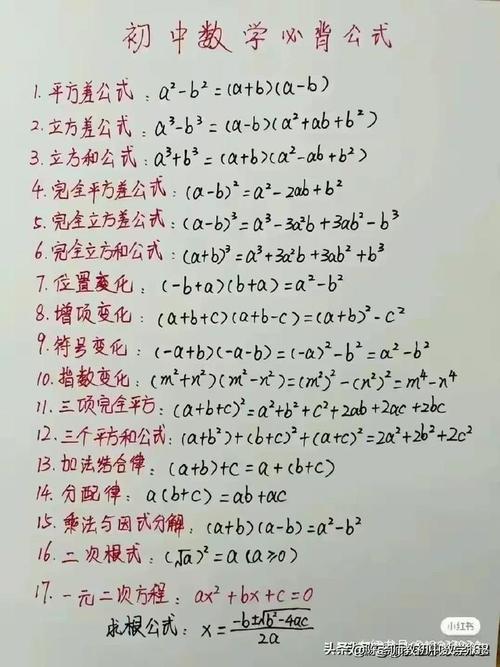 初中数学必背公式
1. 平方差公式：a²-b²=(a+b)(a-b)
2. 立方差公式：a³-b³=(a-b)(a²+ab+b²)
3. 立方和公式：a³+b³=(a+b)(a²-ab+b²)
4. 完全平方差公式：(a-b)²=a²-2ab+b²
5. 完全立方差公式：(a-b)³=a³-3a²b+3ab²-b³
6. 完全立方和公式：(a+b)³=a³+3a²b+3ab²+b³
7. 位置变化：(-b+a)(b+a)=a²-b²
8. 增项变化：(a+b+c)(a+b-c)=(a+b)²-c²
9. 符号变化：(-a+b)(-a-b)=(-a)²-b²=a²-b²
10. 指数变化：(m²+n²)(m²-n²)=(m²)²-(n²)²=m⁴-n⁴
11. 三项完全平方：(a+b+c)²=a²+b²+c²+2ab+2ac+2bc
12. 三个平方和公式：(a+b²)+(b+c)²+(a+c)²=2a²+2b²+2c²
13. 加法结合律：(a+b)+c=a+(b+c)
14. 分配律：a(b+c)=ab+ac
15. 乘法与因式分解：(a+b)(a-b)=a²-b²
16. 二次根式：(√a)²=a(a≥0)
17. 一元二次方程：ax²+bx+c=0
求根公式：x=(-b±√(b²-4ac))/2a
小红书